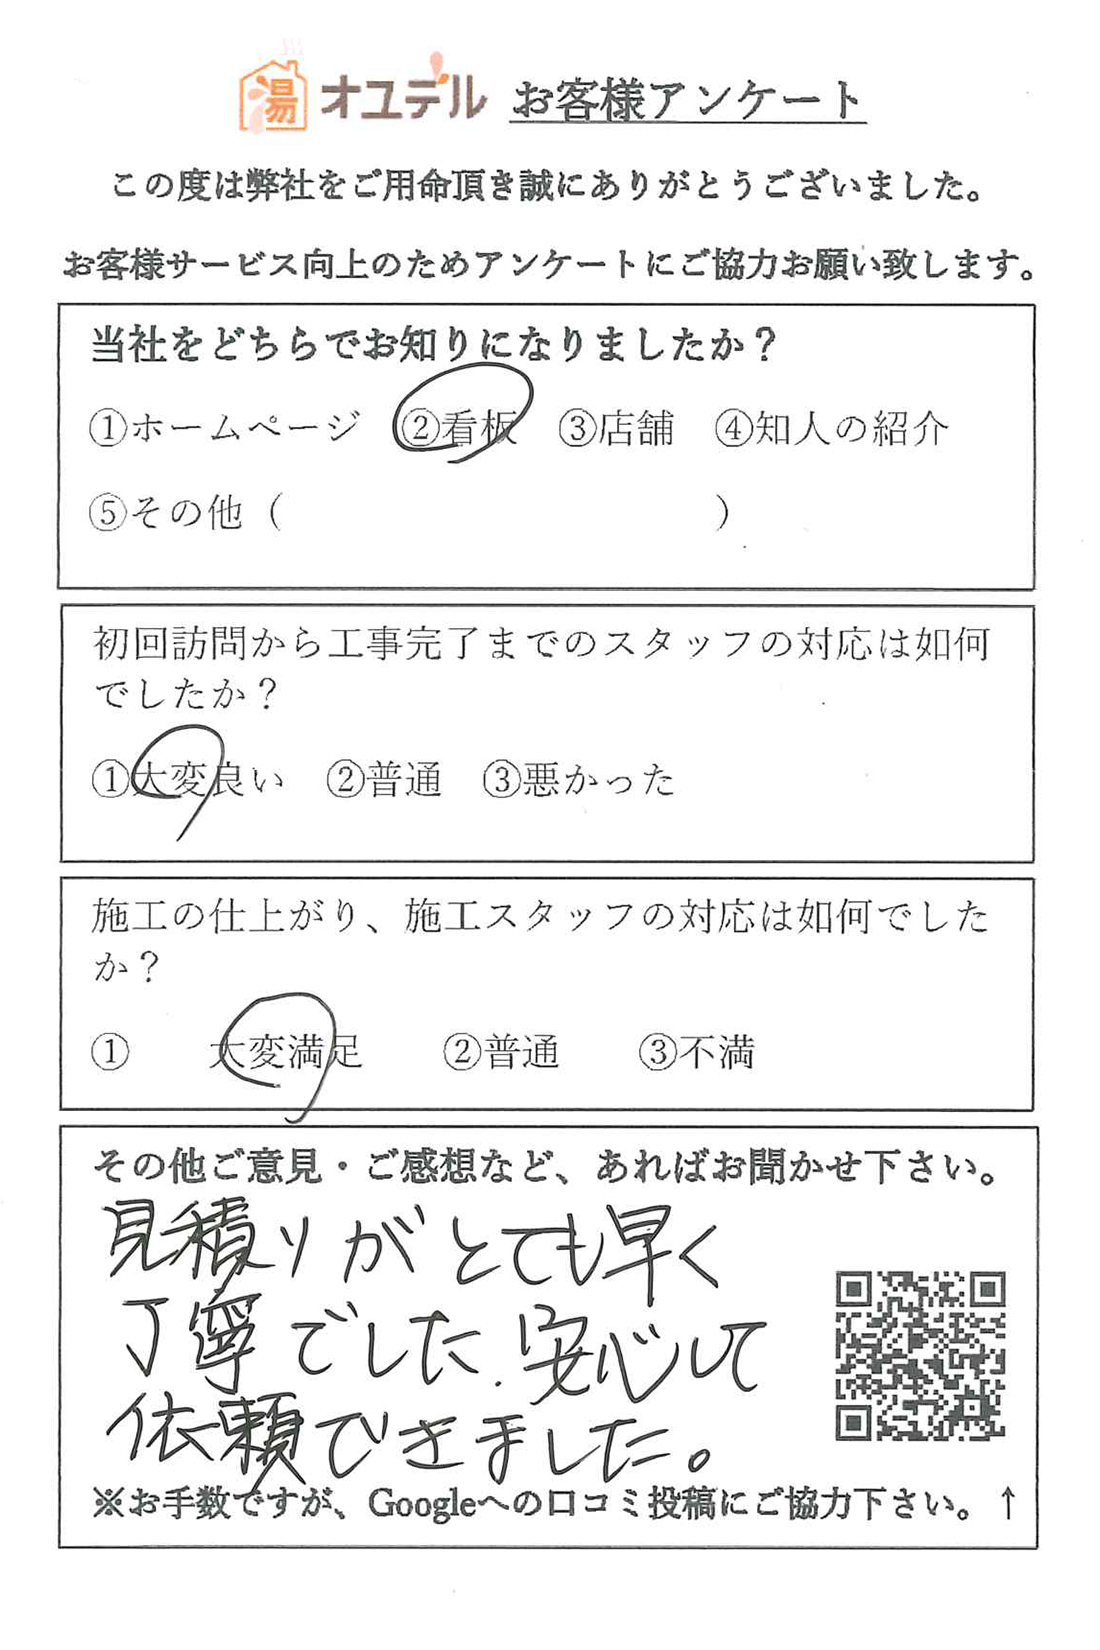 湯 オユデル お客様アンケート
この度は弊社をご用命頂き誠にありがとうございました。
お客様サービス向上のためアンケートにご協力お願い致します。
当社をどちらでお知りになりましたか？
①ホームページ ②看板 ③店舗 ④知人の紹介
⑤その他（ ）
初回訪問から工事完了までのスタッフの対応は如何
でしたか？
①大変良い ②普通 ③悪かった
施工の仕上がり、施工スタッフの対応は如何でした
か？
① 大変満足 ②普通 ③不満
その他ご意見・ご感想など、あればお聞かせ下さい。
見積りがとても早く
丁寧でした.安心して
依頼できました。
※お手数ですが、Googleへの口コミ投稿にご協力下さい。↑